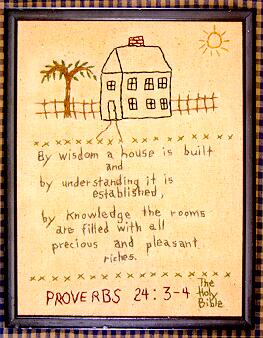 By wisdom a house is built
and
by understanding it is
established,
by knowledge the rooms
are filled with all
precious and pleasant
riches.
PROVERBS 24:3-4 The
Holy
Bible